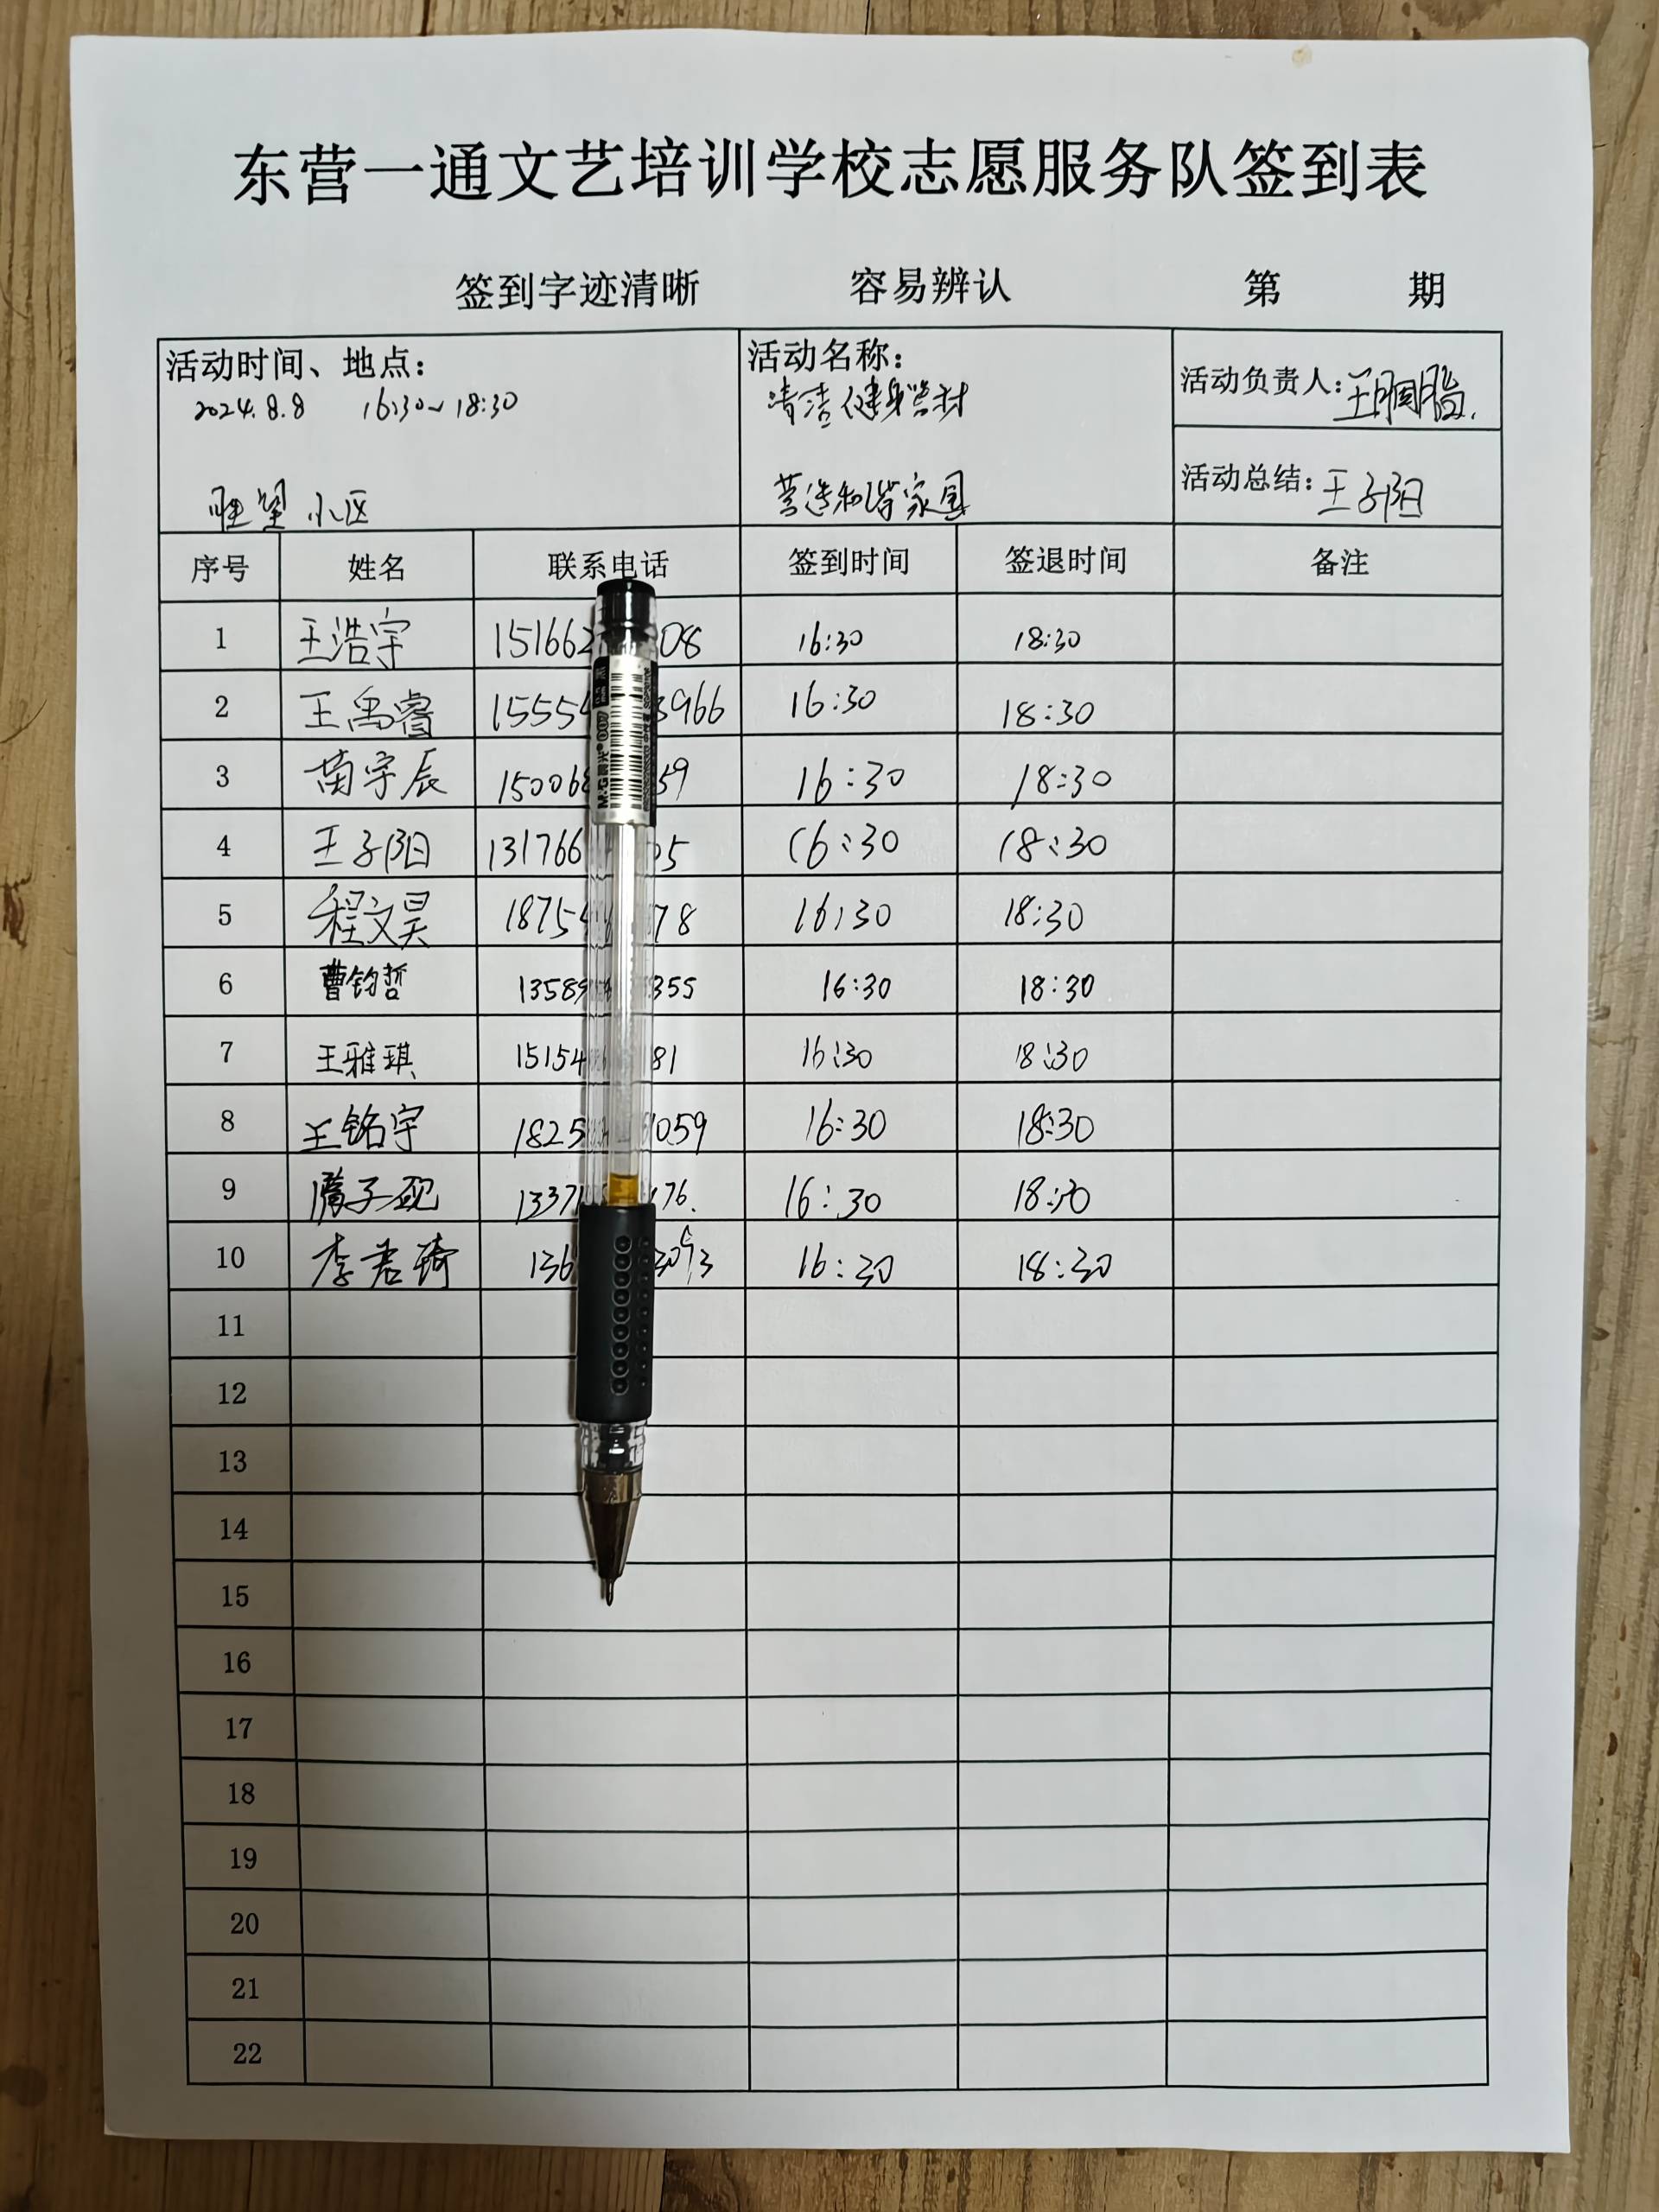 东营一通文艺培训学校志愿服务队签到表
签到字迹清晰 容易辨认 第 期
活动时间、地点:
2024.8.8 16:30~18:30
旺望小区
活动名称:
清洁健身器材
营造和谐家园
活动负责人:王胭脂.
活动总结:王子阳
序号 姓名 联系电话 签到时间 签退时间 备注
1 王浩宇 151662 08 16:30 18:30
2 王禹睿 1555 3966 16:30 18:30
3 苗宇辰 15006 59 16:30 18:30
4 王子阳 131766 05 16:30 18:30
5 程文昊 1875 78 16:30 18:30
6 曹钧哲 13589 355 16:30 18:30
7 王雅琪 15154 81 16:30 18:30
8 王铭宇 1825 1059 16:30 18:30
9 子砚 1337 76. 16:30 18:30
10 李君琦 136 16:30 18:30
11
12
13
14
15
16
17
18
19
20
21
22